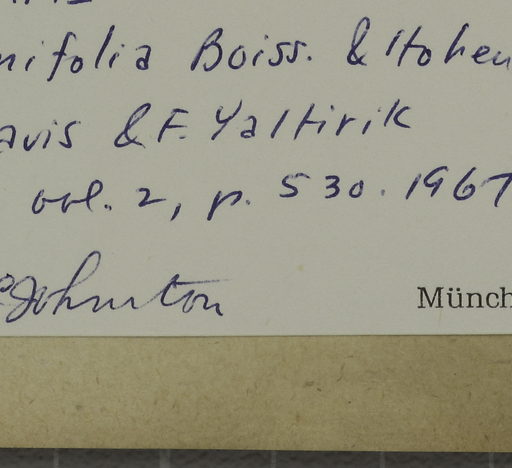 nifolia Boiss. & Hohen
avis & F. Yaltirik
vol. 2, p. 530. 1967
Johnston
Münch